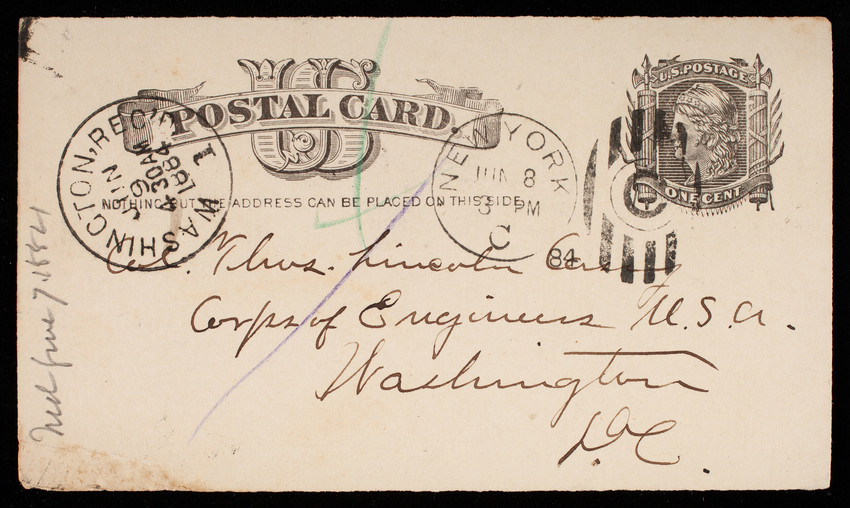 US
POSTAL CARD.
NOTHING BUT THE ADDRESS CAN BE PLACED ON THIS SIDE.
U.S. POSTAGE
ONE CENT
WASHINGTON, REC'D
JUN 9
4 30 AM
1884
1
NEW YORK
JUN 8
3 PM
C
84
C
Col. Thos. Lincoln Casey
Corps of Engineers U.S.A.
Washington
D.C.
Ned June 7. 1884